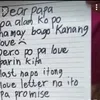 Dear papa
pa alam ko po
hamay bago kanang
love
pero po pa love
parin kita
last napo itong
love letter na ito
pa promise